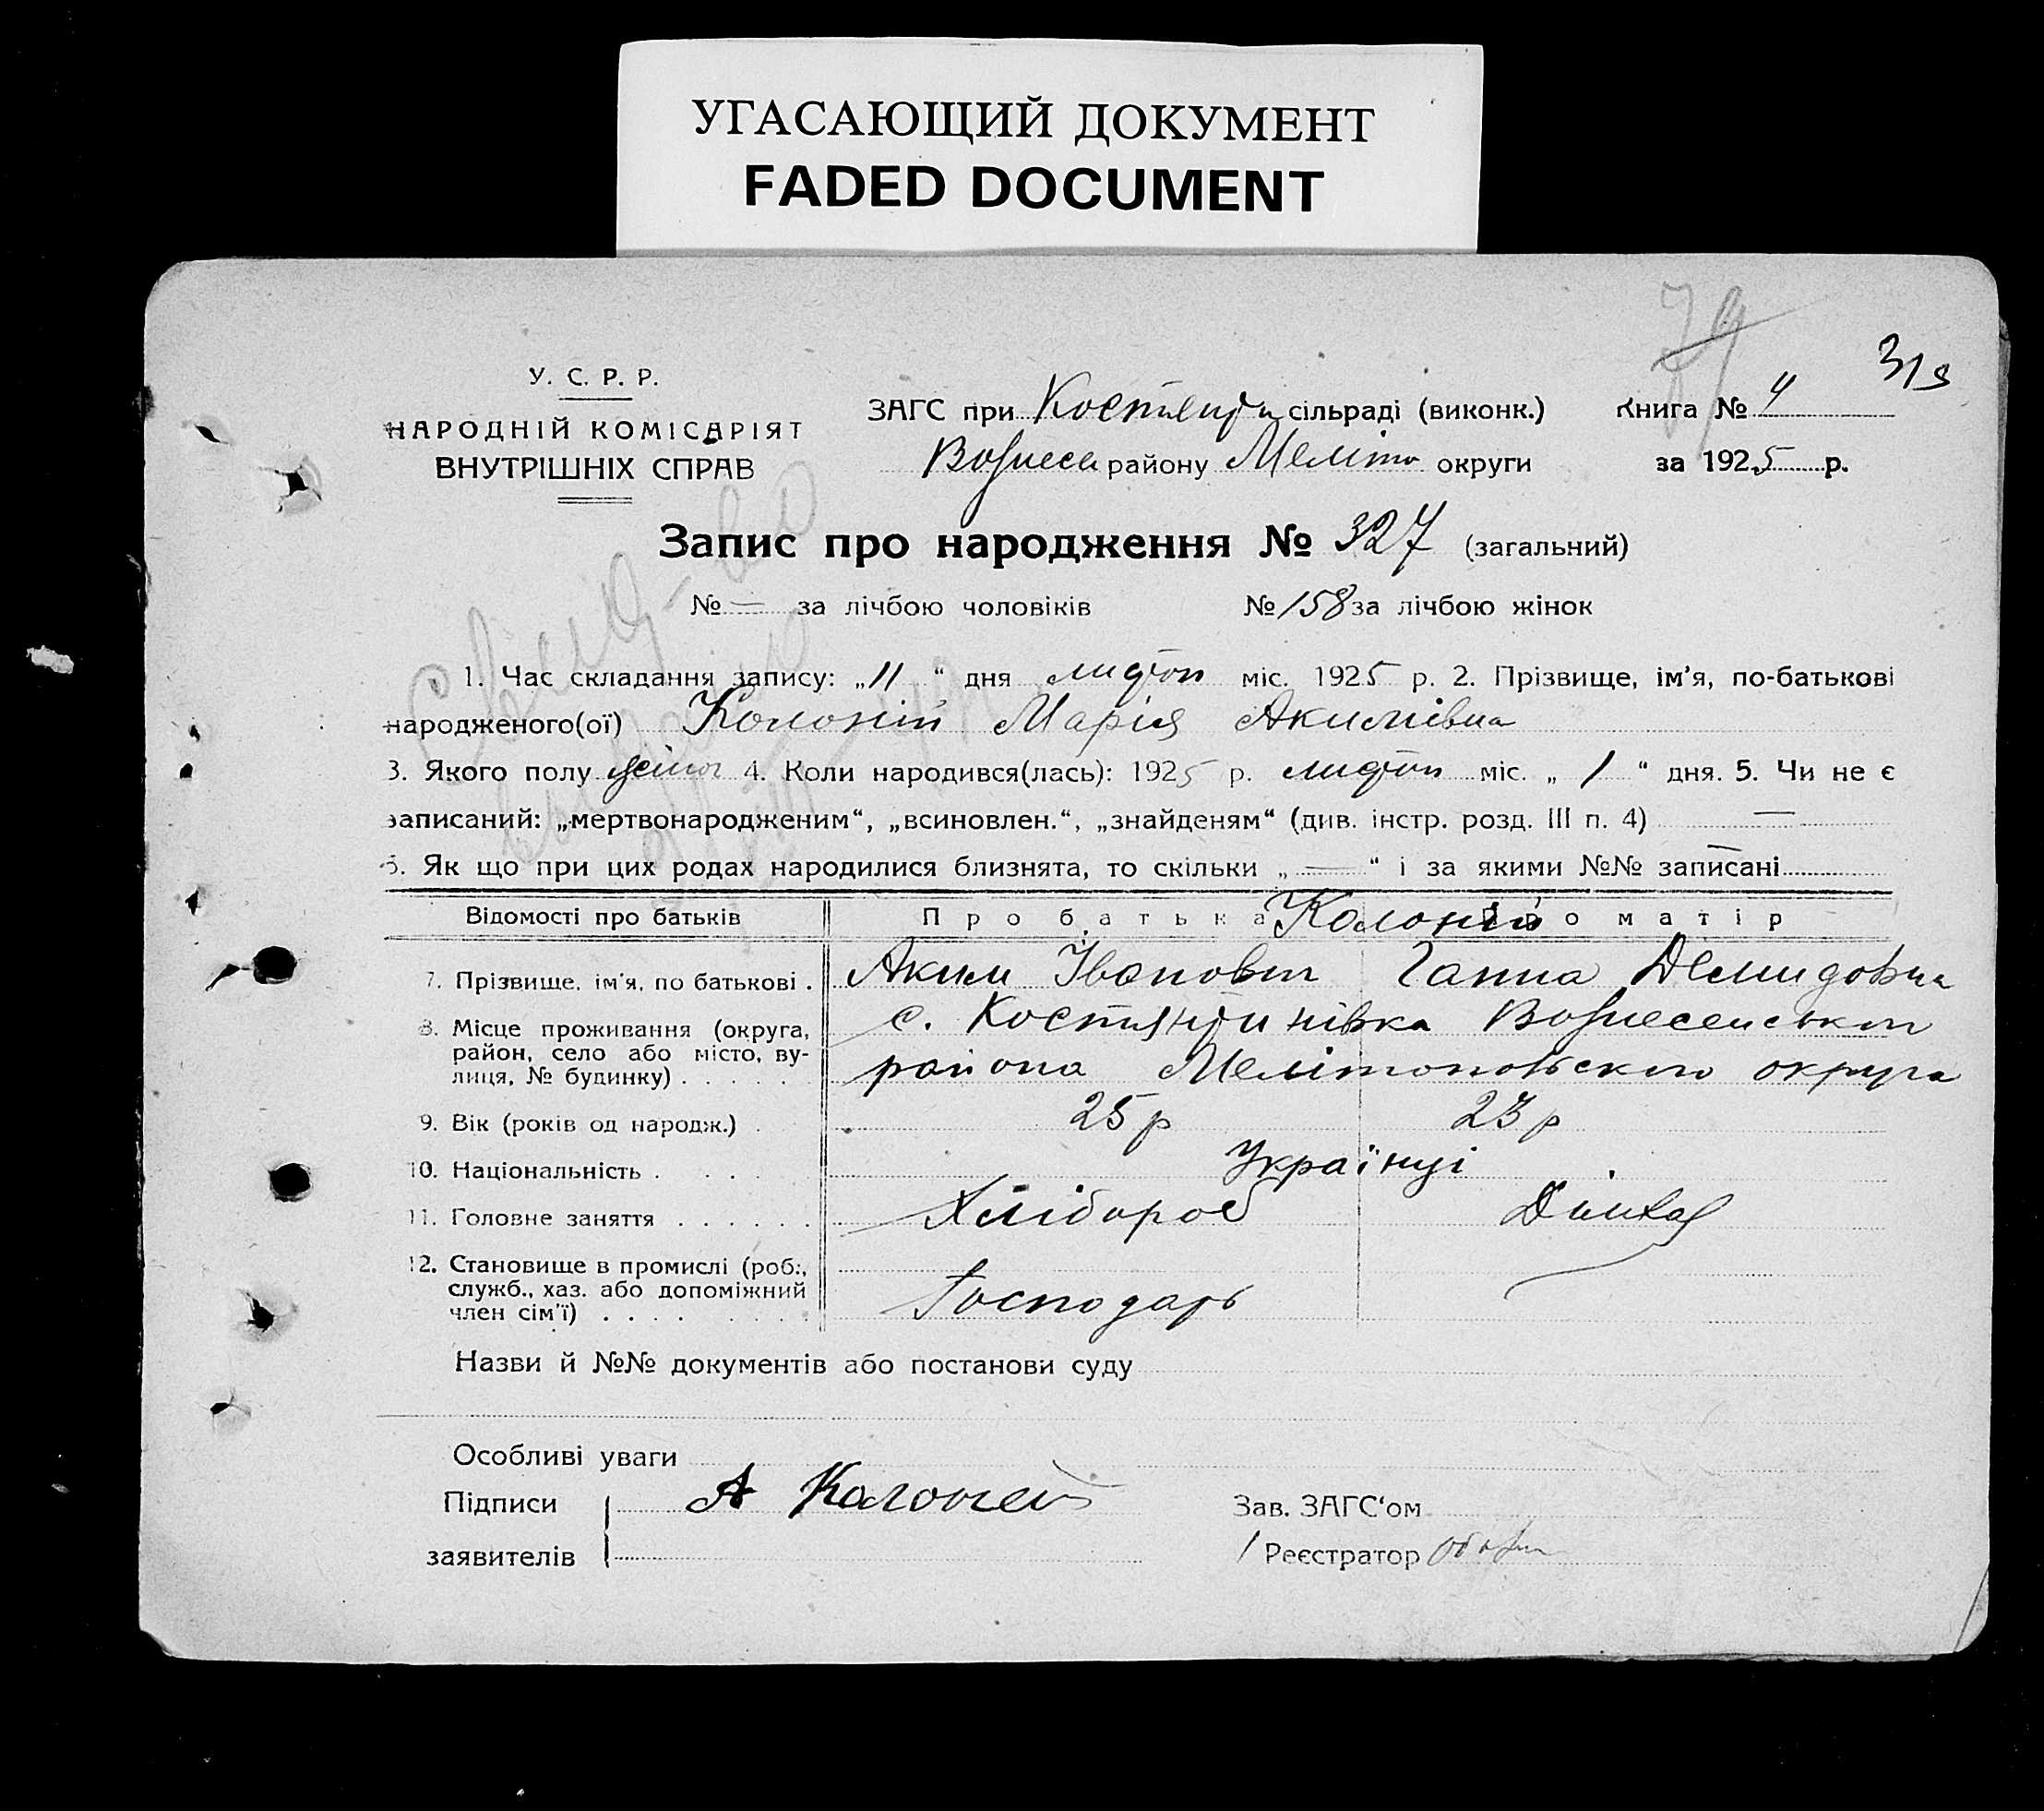 УГАСАЮЩИЙ ДОКУМЕНТ
FADED DOCUMENT
79
319
У. С. Р. Р.
НАРОДНІЙ КОМІСАРІЯТ
ВНУТРІШНІХ СПРАВ
ЗАГС при Костянти сільраді (виконк.)
Вознесен району Меліто округи
Книга № 4
за 1925 р.
Запис про народження № 327 (загальний)
№ — за лічбою чоловіків № 158 за лічбою жінок
1. Час складання запису: „11“ дня листоп міс. 1925 р. 2. Прізвище, ім'я, по-батькові
народженого(ої) Колоній Марія Акимівна
3. Якого полу жіноч 4. Коли народився(лась): 1925 р. листоп міс. „1“ дня. 5. Чи не є
записаний: „мертвонародженим“, „всиновлен.“, „знайденям“ (див. інстр. розд. III п. 4) —
6. Як що при цих родах народилися близнята, то скільки „—“ і за якими №№ записані —
Відомості про батьків Про батька Про матір
Колоній
7. Прізвище, ім'я, по батькові . Аким Іванович Ганна Демидовна
8. Місце проживання (округа, район, село або місто, ву-
лиця, № будинку) . . . . .
с. Костянтинівка Вознесенського
района Мелітопольского округа
9. Вік (років од народж.) . 25 р 23 р
10. Національність . . . . Українці
11. Головне заняття . . . . . . Хлібороб
12. Становище в промислі (роб.,
служб., хаз. або допоміжний
член сім'ї) . . . . . . . .
Господарь
Назви й №№ документів або постанови суду
Особливі уваги
Підписи
заявителів
А Калоней
Зав. ЗАГС'ом
Реєстратор